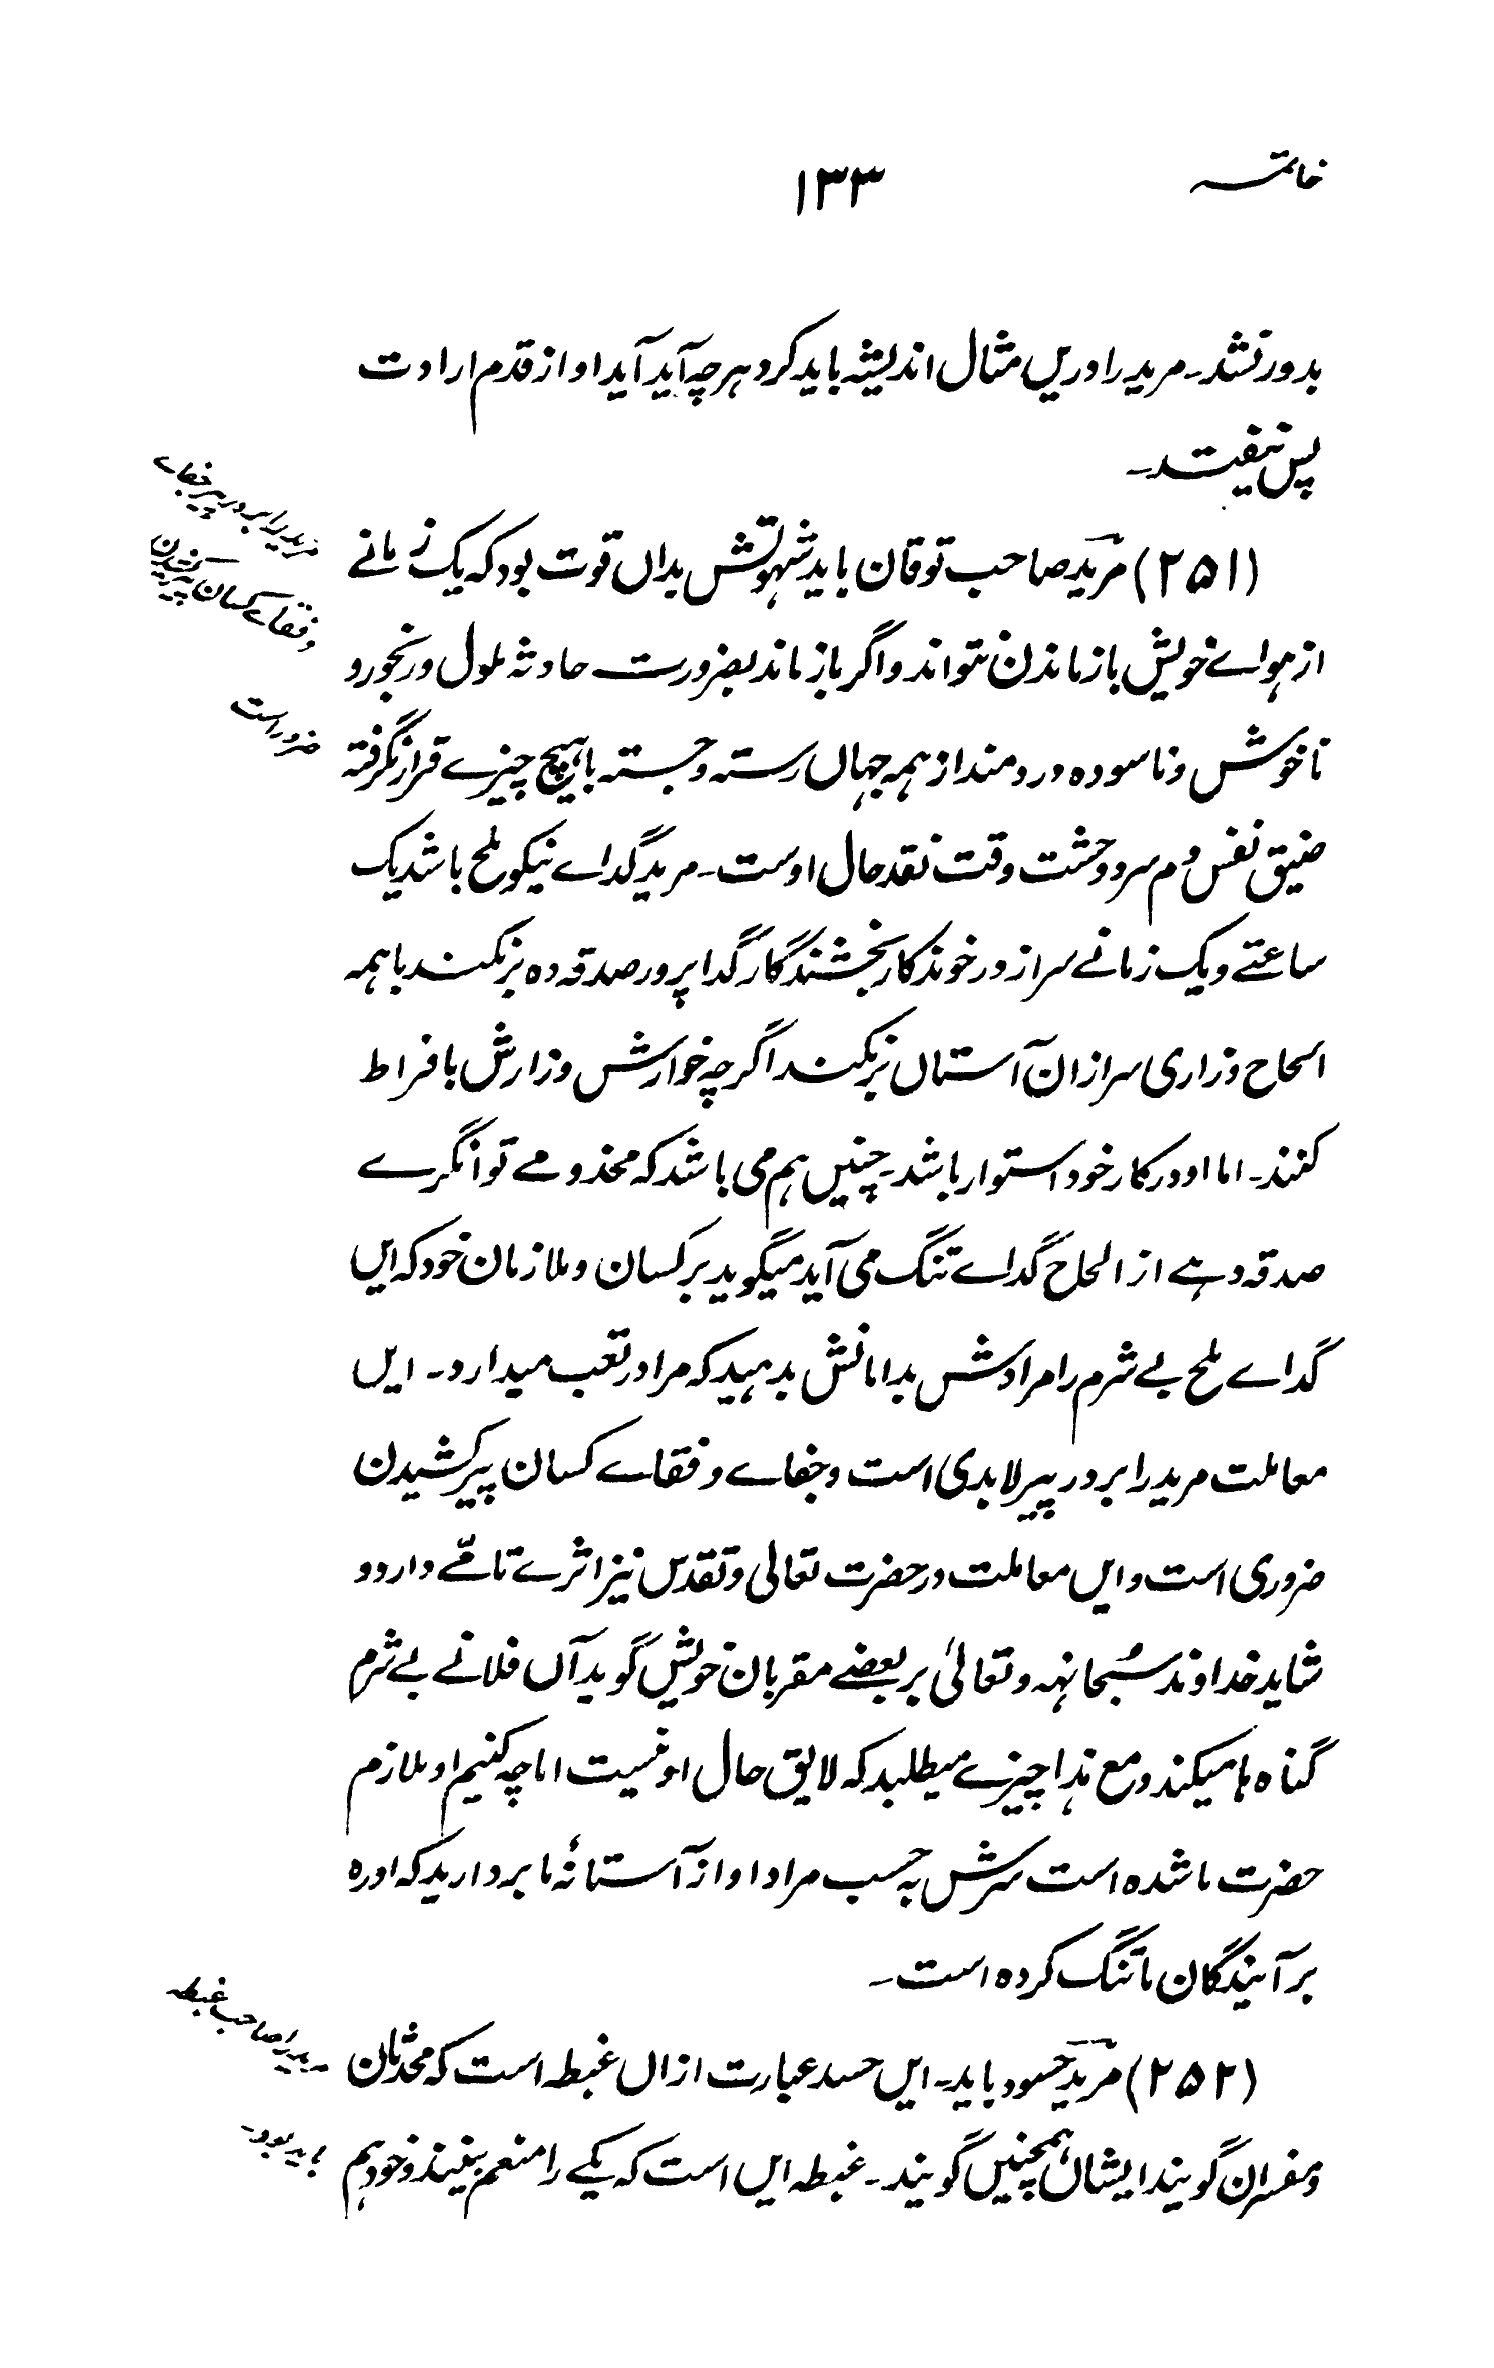 خاتمہ
۱۳۳
بدور نشد۔ مرید را وریں مثال اندیشہ باید کرد ہرچہ آید آید او از قدم ارادت
پس نیفتد۔
(۲۵۱) مرید صاحب توقان باید شہوتش بداں قوت بود کہ یک زمانے
از ہواے خویش باز ماندن نتواند و اگر باز ماند بضرورت حادثہ ملول و رنجور و
ناخوش و ناسودہ و دردمند از ہمہ جہاں رستہ و جستہ با ہیچ چیزے قرار نگرفتہ
ضیق نفس و دم سرد و حشت وقت نقد حال اوست۔ مرید گداے نیکو ملح باشد یک
ساعتے و یک زمانے سر از در خوندکار بخشندگار گدا پرور صدقہ دہ برنکند با ہمہ
الحاح و زاری سر ازان آستاں برنکند اگرچہ خوارش و زارش بافراط
کنند۔ اما او در کار خود استوار باشد۔ چنیں ہم می باشد کہ مخدومے توانگرے
صدقہ دہے از الحاح گداے تنگ می آید میگوید بر کسان و ملازمان خود کہ ایں
گداے ملح بے شرم را مرادش بدامانش بدہید کہ مرا در تعب میدارد۔ ایں
معاملت مرید را بر در پیر لابدی است و جفاے و فقاے کسان پیر کشیدن
ضروری است و ایں معاملت در حضرت تعالی و تقدس نیز اثرے تامّے دارد و
شاید خداوند سُبحانہٗ و تعالیٰ بر بعضے مقربان خویش گوید آں فلانے بے شرم
گناہ ہا میکند و مع ہذا چیزے میطلبد کہ لایق حال او نیست اما چہ کنیم او ملازم
حضرت ما شدہ است سرش بہ حسب مراد او از آستانۂ ما بردارید کہ او رہ
بر آیندگان ما تنگ کردہ است۔
(۲۵۲) مرید حسود باید۔ ایں حسد عبارت ازاں غبطہ است کہ محدثان
و مفسران گویند ایشاں ہمچنیں گویند۔ غبطہ ایں است کہ یکے را منعم بینند و خود ہم
مرید را بر در پیر جفاے
و قفاے کسان پیر کشیدن
ضرور است
مرید را صاحب غبطہ
باید بود۔